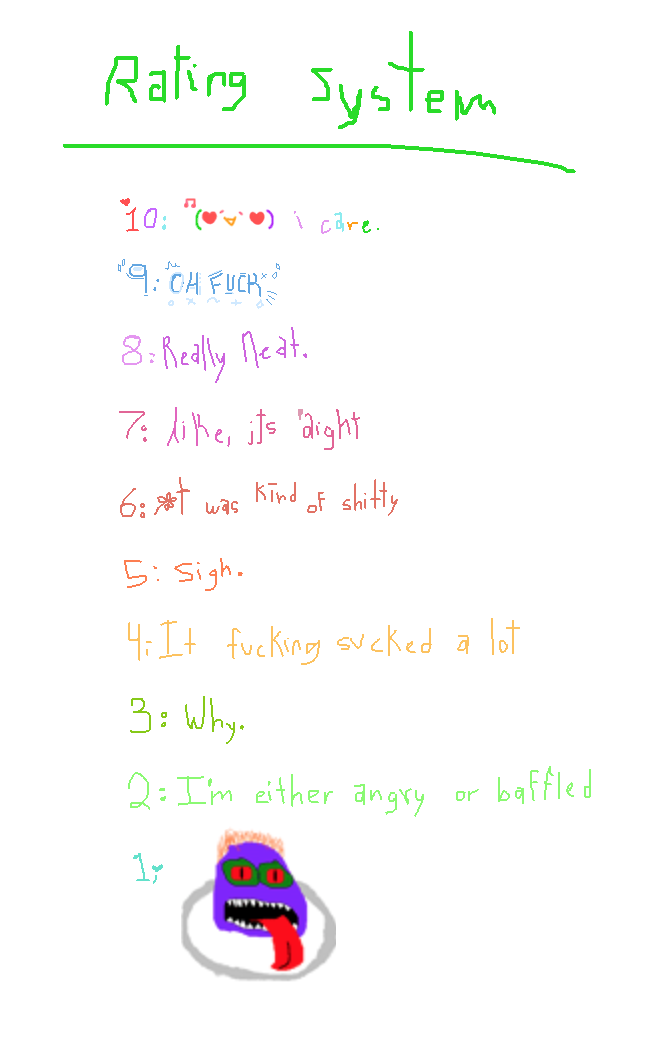 Rating system
10: ♫(♥´▽`♥) i care.
9: OH FUCK
8: Really neat.
7: like, its aight
6: *t was kind of shitty
5: sigh.
4: It fucking sucked a lot
3: Why.
2: I'm either angry or baffled
1;